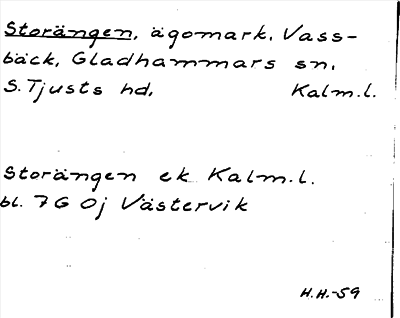 Storängen, ägomark, Vass-
bäck, Gladhammars sn,
S. Tjusts hd, Kalm.l.
Storängen ek Kalm.l.
bl. 7G Oj Västervik
H.H.-59